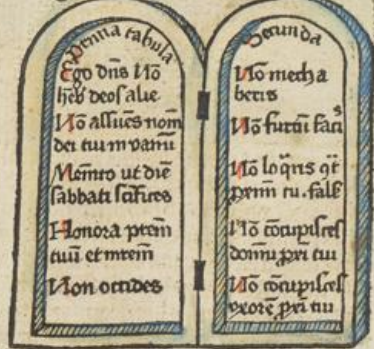 Prima tabula
Ego dñs Nō
heb̄ deos alie
Nō assūes nom̄
dei tui in vanū
Memēto ut diē
sabbati scīfices
Honora prem̄
tuū et mrem̄
Non occides
Secunda
Nō mecha
beris
Nō furtū facis
Nō loq̄ris
p̄rm̄ tu. fals̄
Nō cōcupisces
domū px̄i tui
Nō cōcupisces
vxorē px̄i tui